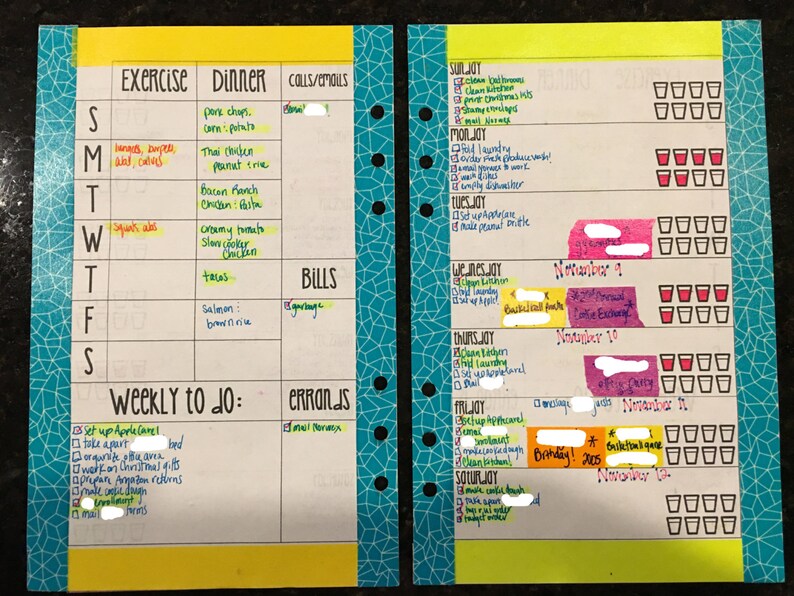 EXERCISE DINNER CALLS/EMAILS
S
pork chops,
corn + potato
M
burpees,
abs, calves
Thai Chicken
peanut + rice
T
Bacon Ranch
Chicken + Pasta
W
Squats abs
creamy tomato
Slow cooker
Chicken
T
tacos
BILLS
F
Salmon +
brown rice
garbage
S
WEEKLY TO DO:
Set up AppleCare!
take apart bed
organize office area
work on Christmas gifts
prepare Amazon returns
make cookie dough
enrollment
mail forms
ERRANDS
mail Norwex
SUNDAY
clean bathroom
clean kitchen
print Christmas lists
Stamp envelopes
mail Norwex
MONDAY
fold laundry
order Fresh Produce Wash!
email Norwex to work
wash dishes
empty dishwasher
TUESDAY
Set up AppleCare
make peanut brittle
WEDNESDAY November 9
clean kitchen
fold laundry
set up Apple!
Basketball
2nd Annual
Cookie Exchange
THURSDAY November 10
Clean Kitchen
fold laundry
set up AppleCare!
Mail
office Party
FRIDAY message guests November 11
set up Applecare!
email
enrollment
make cookie dough
Clean Kitchen!
Birthday! 2005
Basketball game
SATURDAY November 12
make cookie dough
take apart
toys r us order
target order